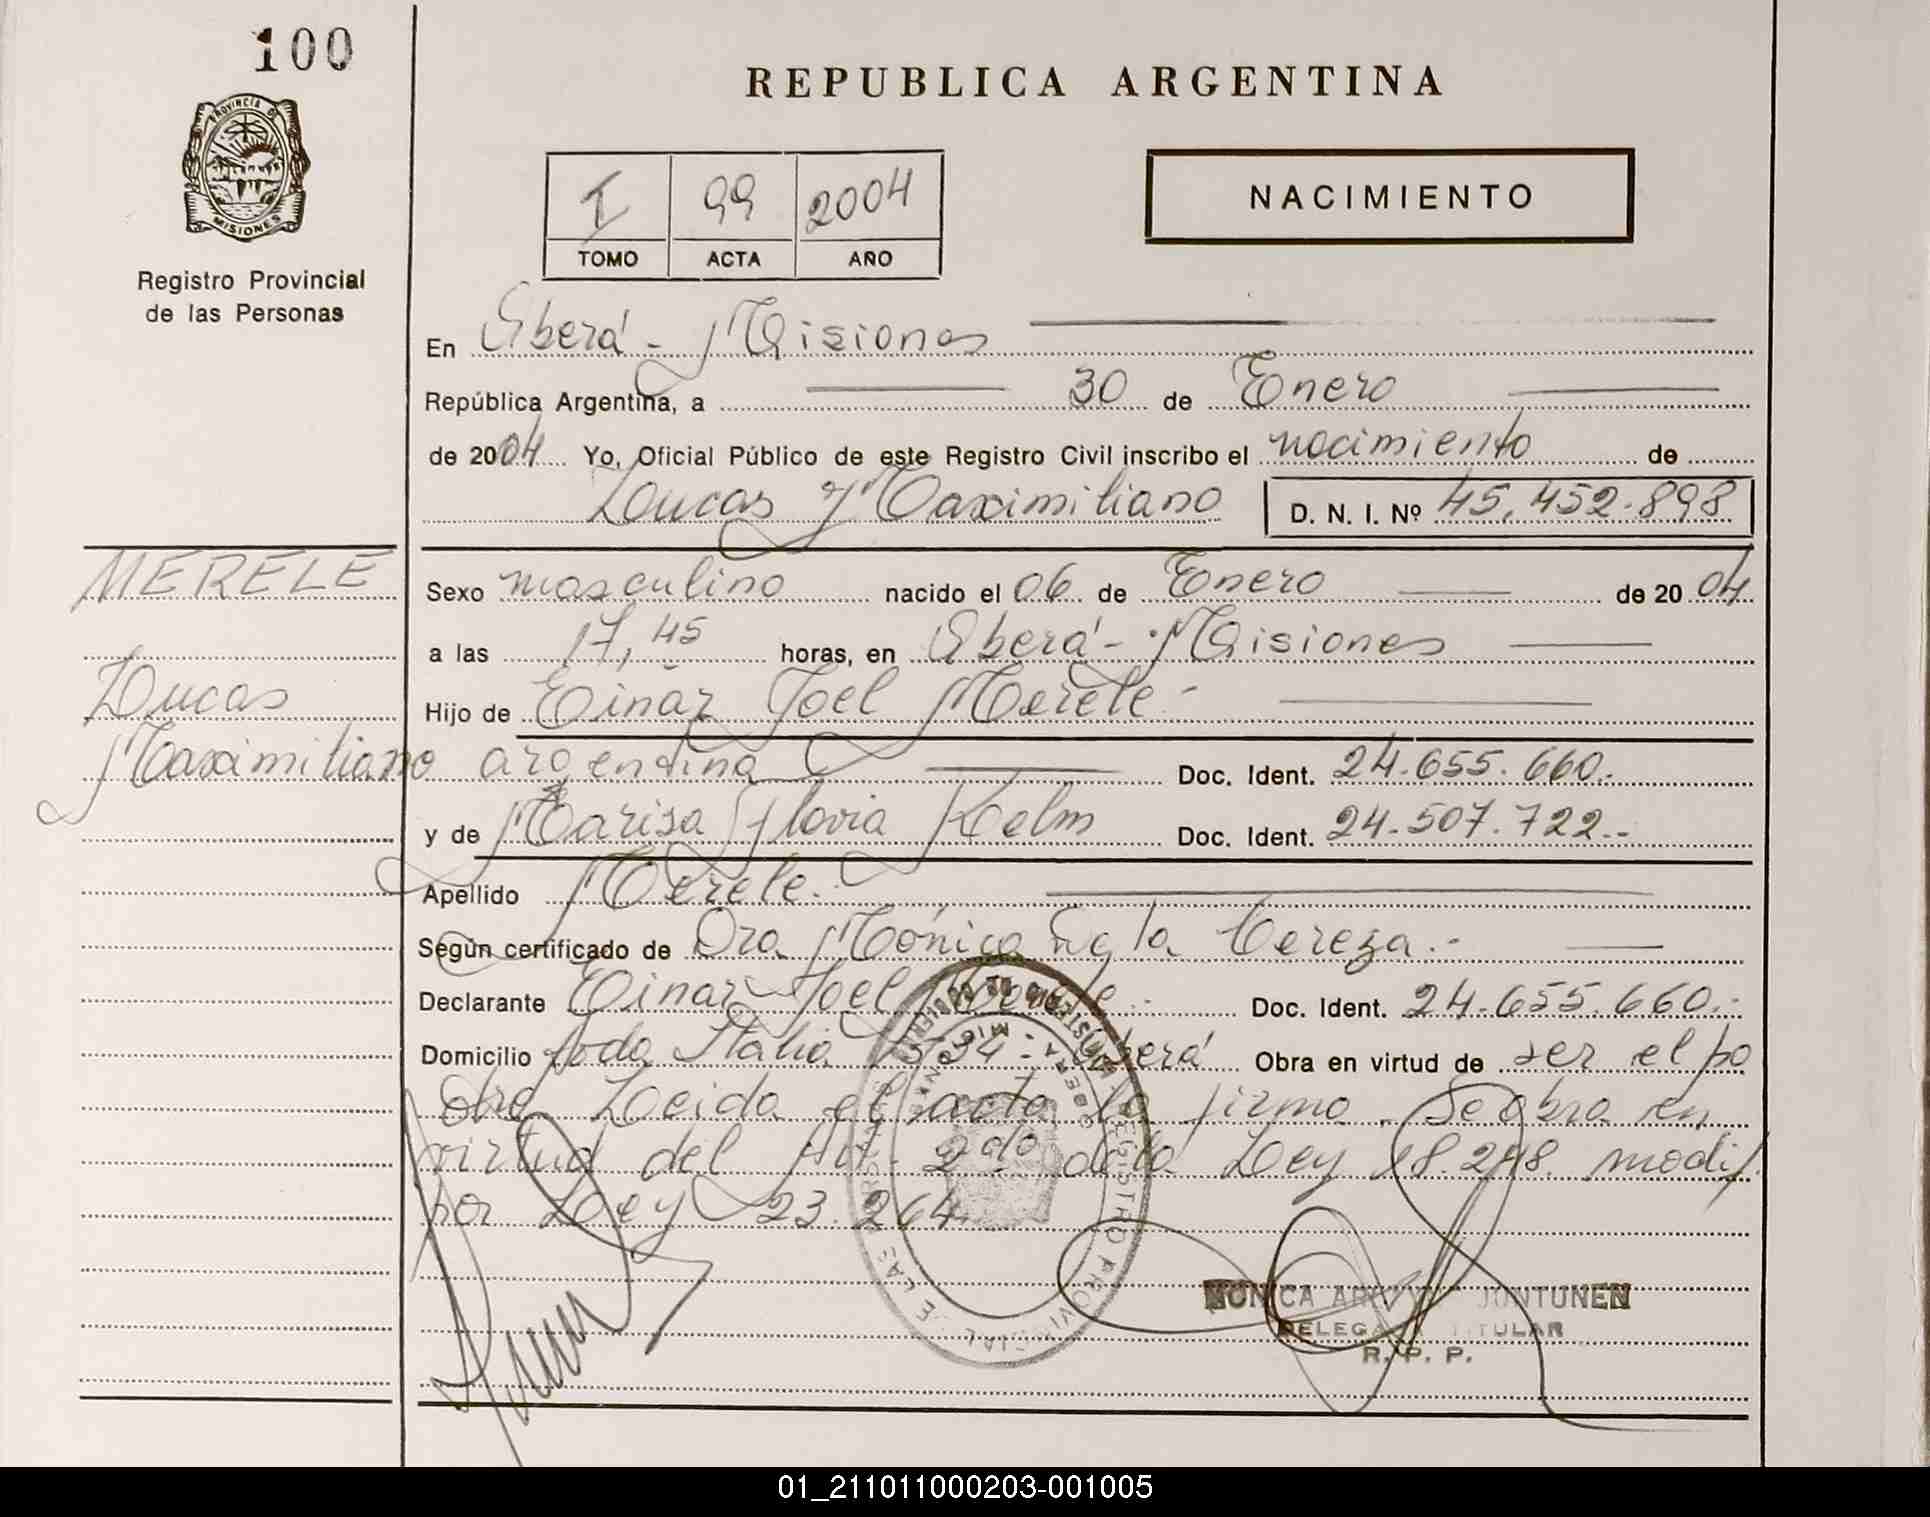 100
PROVINCIA DE
MISIONES
Registro Provincial
de las Personas
REPUBLICA ARGENTINA
I 99 2004
TOMO ACTA AÑO
NACIMIENTO
En Oberá - Misiones
República Argentina, a 30 de Enero
de 2004 Yo, Oficial Público de este Registro Civil inscribo el nacimiento de
Lucas Maximiliano D. N. I. Nº 45.452.898
MERELE
Lucas
Maximiliano
Sexo masculino nacido el 06 de Enero de 2004
a las 17,45 horas, en Oberá - Misiones
Hijo de Einar Joel Merele -
argentina Doc. Ident. 24.655.660.-
y de Marisa Flavia Kelm Doc. Ident. 24.507.722.-
Apellido Merele.-
Según certificado de Dra Mónica de la Cereza.-
Declarante Einar Joel Merele.- Doc. Ident. 24.655.660.-
Domicilio Italia - Oberá Obra en virtud de ser el pa
dre Leida el acta la firma. Se obra en
virtud del Art. 2do de la Ley 18.248. modif.
por Ley 23.264.
MINISTERIO DE GOBIERNO
REGISTRO PROVINCIAL DE LAS PERSONAS
OBERA - MISIONES
MONICA JUNTUNEN
DELEGADA TITULAR
R. P. P.
01_211011000203-001005